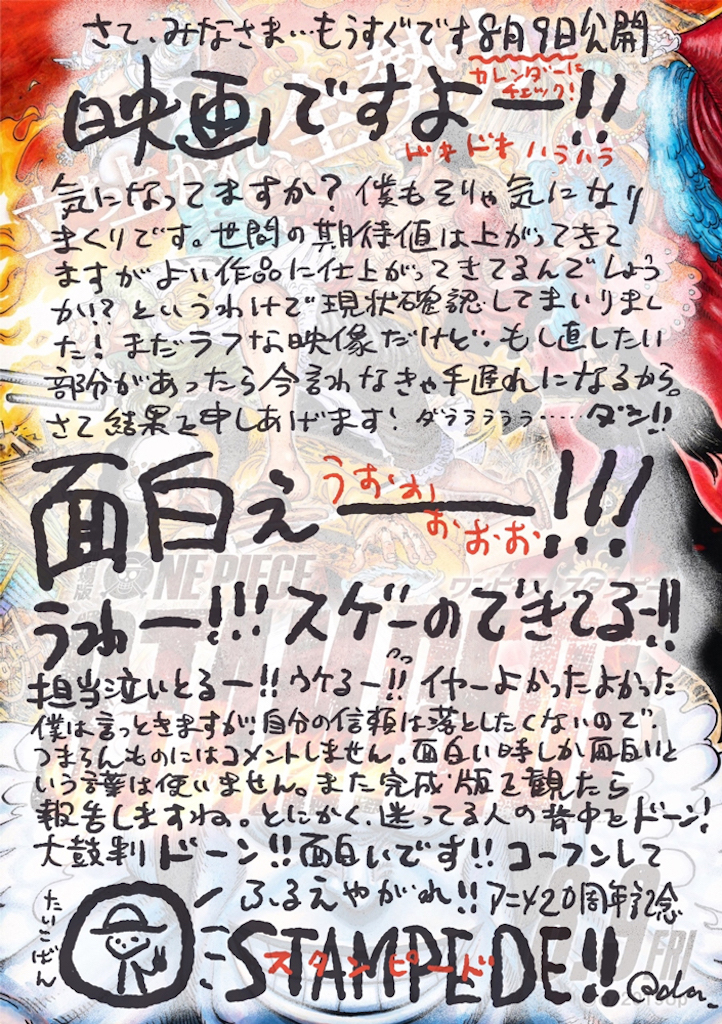 さて、みなさま…もうすぐです8月9日公開
カレンダーに
チェック!
映画ですよー!!
ドキドキ ハラハラ
気になってますか?僕もそりゃ気になり
まくりです。世間の期待値は上がってきて
ますがよい作品に仕上がってきてるんでしょう
か!?というわけで現状確認してまいりまし
た!まだラフな映像だけど、もし直したい
部分があったら今言わなきゃ手遅れになるから。
さて結果を申しあげます!ダララララララ……ダン!!
面白え━━━!!!
うおおおおお
うわー!!!スゲーのできてるー!!
担当泣いとるー!!ウケるーっっ!!イヤーよかったよかった
僕は言っときますが、自分の信頼は落としたくないので、
つまらんものにはコメントしません。面白い時しか面白いと
いう言葉は使いません。また完成版を観たら
報告しますね。とにかく、迷ってる人の背中をドーン!
太鼓判ドーン!!面白いです!!コーフンして
ふるえやがれ!!アニメ20周年記念
たいこばん
STAMPEDE!!
スタンピード
ONE PIECE
FRI